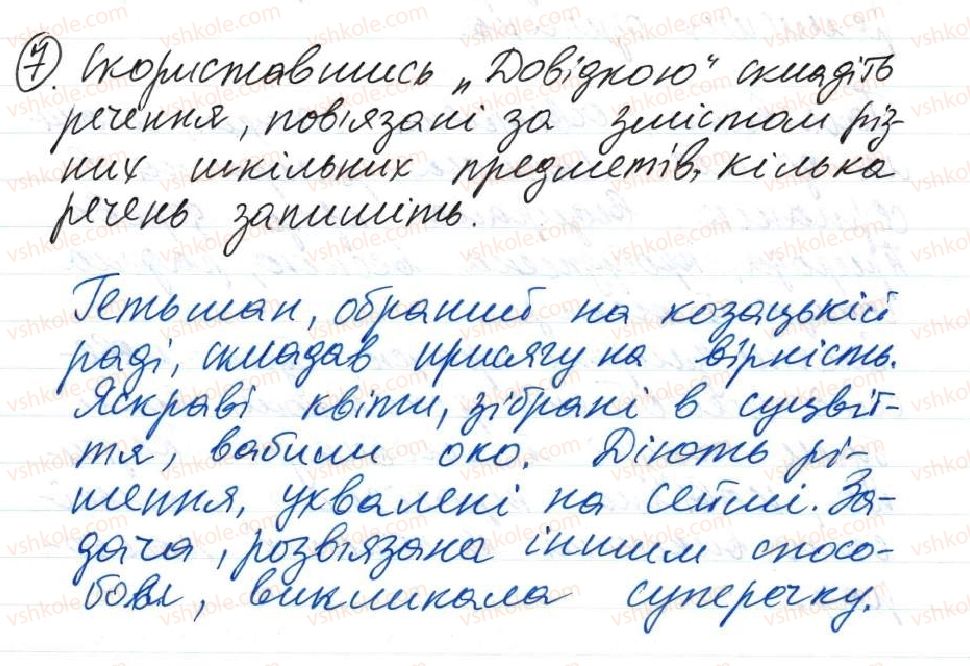 7. Скориставшись „Довідкою" складіть
речення, пов'язані за змістом різ-
них шкільних предметів, кілька
речень запишіть.
Гетьман, обраний на козацькій
раді, складав присягу на вірність.
Яскраві квіти, зібрані в суцвіт-
тя, вабили око. Діють рі-
шення, ухвалені на сеймі. За-
дача, розв'язана іншим спосо-
бом, викликала суперечку.